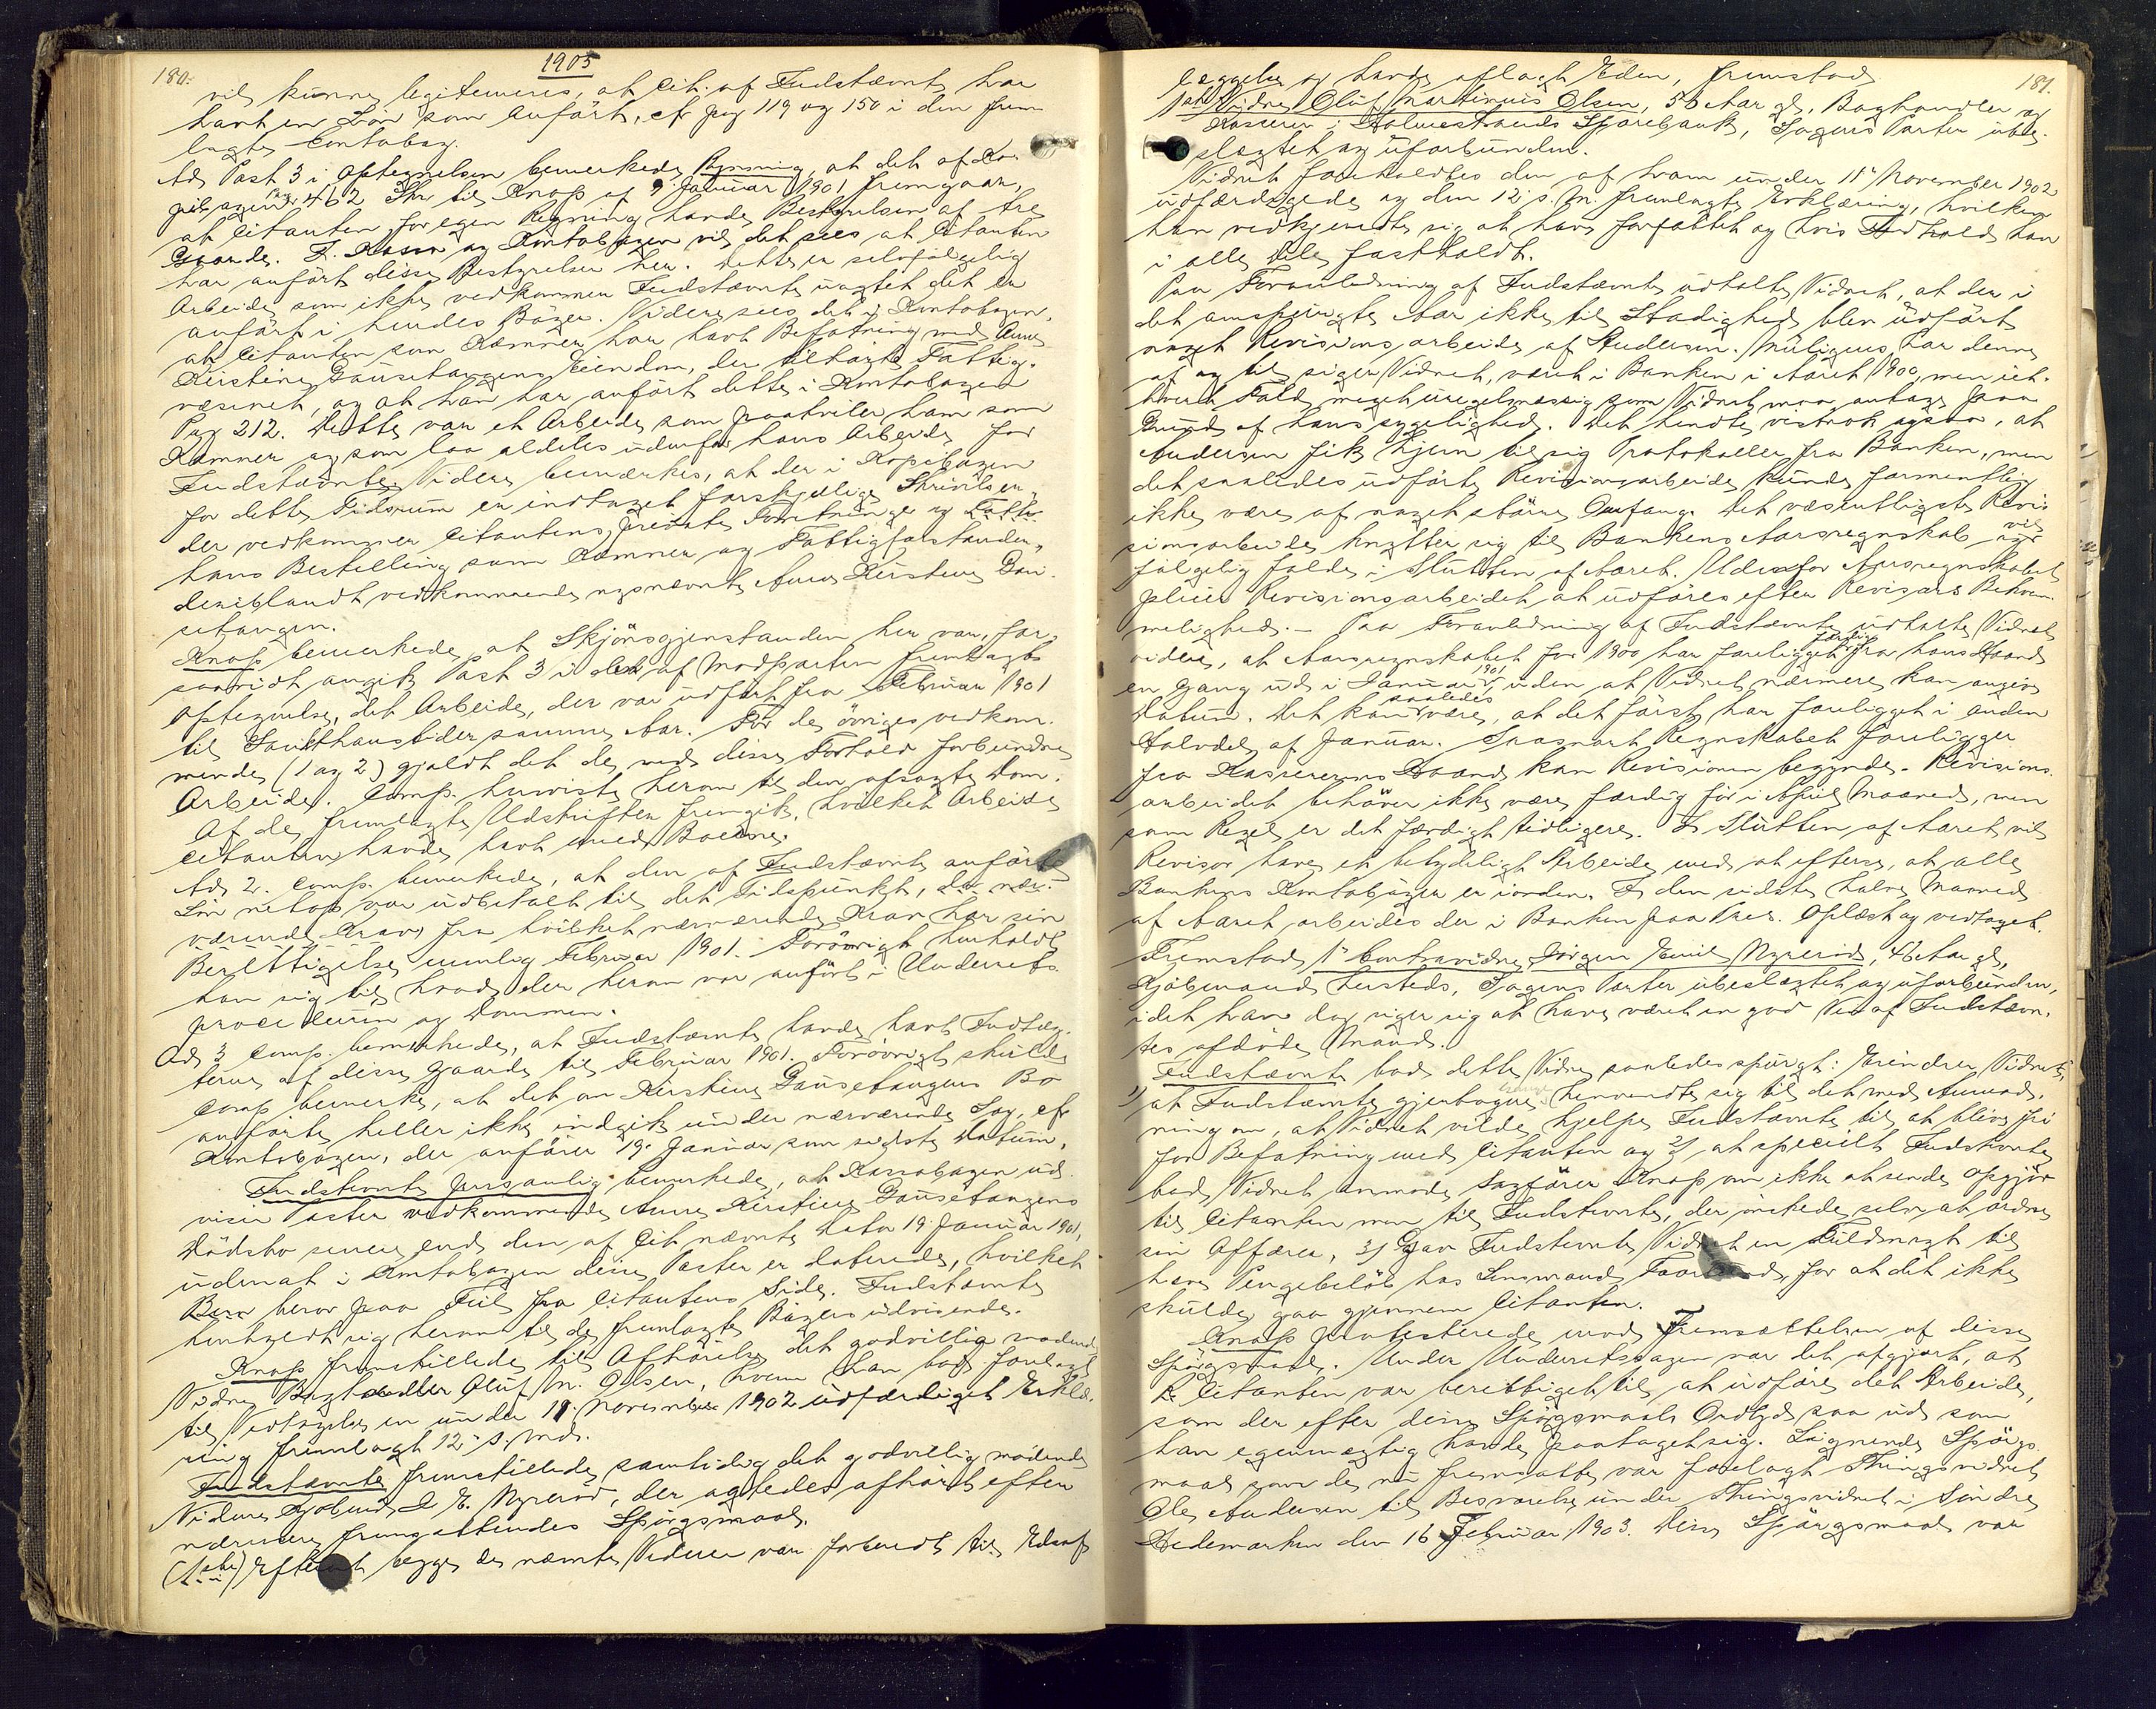 180.
1905
vil kunne legitimeres, at Cit. af Indstævnte har
havt en Løn som anført, cfr pag 119 og 150 i den frem
lagte Contobog.
Ad Post 3 i Optegnelsen bemerkede Rynning, at det af Ko-
pibogens Pag 462 Skr til Knap af 9. Januar 1901 fremgaar,
at Citanten for egen Regning havde Bestyrelsen af tre
Gaarde. I Kassa og Kontobogen vil det sees at Citanten
har anført disse Bestyrelser her. Dette er selvfølgelig
Arbeide som ikke vedkommer Indstævnte uagtet det er
anført i hendes Bøger. Videre sees det i Kontobogen,
at Citanten som Kæmner har havt Befatning med Anne
Kirstine Gausetangens Eiendom, der tilhørte Fattig-
væsenet, og at han har anført dette i Kontobogen
Pag 212. Dette var et Arbeide som paahviler ham som
Kæmner og som laa aldeles udenfor hans Arbeide for
Indstævnte. Videre bemærkes, at der i Kopibogen
for dette Tidsrum er indtaget forskjellige Skrivelser
der vedkommer Citantens private Forretninger og
hans Bestilling som Kæmner og Fattigforstander,
deriblandt vedkommende nysnævnte Anne Kirstine Gau-
setangen.
Knap bemerkede, at Skjønsgjenstanden her var, for-
saavidt angik Post 3 i den af Modparten fremlagte
Optegnelse, det Arbeide, der var udført fra Februar 1901
til Sankthanstider samme Aar. For de øvriges vedkom-
mende (1 og 2) gjaldt det de med disse Forhold forbundne
Arbeider. Comp. henviste herom til den afsagte Dom.
Af de fremlagte Udskrifter fremgik, hvilket Arbeide
Citanten havde havt med Boerne.
Ad 2. Comp. bemerkede, at den af Indstævnte anførte
Løn netop var udbetalt til det Tidspunkt, da nær-
værende Krav fra hvilket nærværende Krav har sin
Berettigelse nemlig Februar 1901. Forøvrigt henholdt
han sig til, hvad der herom var anført i Underrets-
proceduren og Dommen.
Ad 3 Comp. bemerkede, at Indstævnte havde havt Indtæg-
terne af disse Gaarde til Februar 1901. Forøvrigt skulde
Comp bemerke, at det om Kirstine Gausetangens Bo
anførte heller ikke indgik under nærværende Sag, cfr
Kontobogen, der anfører 19. Januar som sidste Datum.
Indstevnte personlig bemerkede, at Kassabogen ud-
viser Poster vedkommende Anne Kirstine Gausetangens
Dødsbo senere end den af Cit nævnte Dato 19. Januar 1901,
uden at i Kontobogen disse Poster er daterede, hvilket
beror paa Feil fra Citantens Side. Indstævnte
henholdt sig herom til de fremlagte Bøgers udvisende.
Knap fremstillede til Afhørelse det godvillig mødende
Vidne Boghandler Oluf M. Olsen, hvem han bad forelagt
til Vedtagelse en under 11. November 1902 udfærdiget Erklæ-
ring fremlagt 12. s. Md.
Indstævnte fremstillede samtidig det godvillig mødende
Vidne, Kjøbmand J. E. Nyrerød, der agtedes afhørt efter
nærmere fremsættendes Spørgsmaal.
Efterat begge de nævnte Vidner var forberedt til Edsaf-
181.
læggelse og havde aflagt Eden, fremstod
1ste Vidne Oluf Martinius Olsen, 56 Aar gl, Boghandler og
Kasserer i Holmestrands Sparebank, Sagens Parter ube-
slægtet og uforbunden.
Vidnet foreholdtes den af ham under 11te November 1902
udfærdigede og den 12 s. M. fremlagte Erklæring, hvilken
han vedkjendte sig at have forfattet og hvis Indhold han
i alle Dele fastholdt.
Paa Foranledning af Indstævnte udtalte Vidnet, at der i
det omspurgte Aar ikke til Stadighed blev udført
noget Revisionsarbeide af Andersen. Muligens har denne
af og til, siger Vidnet, været i Banken i Aaret 1900, men i et-
hvert Fald meget uregelmæssig som Vidnet maa antage paa
Grund af hans sygelighed. Det hendte vistnok ogsaa, at
Andersen fik hjem til sig Protokoller fra Banken, men
det saaledes udførte Revisionsarbeide kunde formentlig
ikke være af noget større Omfang. Det væsentligste Revi-
sionsarbeide knytter sig til Bankens Aarsregnskab og vil
følgelig falde i Slutten af Aaret. Udenfor Aarsregnskabet
pleier Revisionsarbeidet at udføres efter Revisors Bekvem-
melighed. – Paa Foranledning af Indstævnte udtalte Vidnet
videre, at Aarsregnskabet for 1900 har foreligget færdig fra hans Haand
en Gang ud i Januar 1901, uden at Vidnet nærmere kan angive
Datum. Det kan saaledes være, at det først har foreligget i anden
Halvdel af Januar. Saasnart Regnskabet foreligger
fra Kassererens Haand kan Revisionen begynde. Revisions-
arbeidet behøver ikke være færdig før i April Maaned, men
som Regel er det færdigt tidligere. I Slutten af Aaret vil
Revisor have et betydeligt Arbeide med at efterse, at alle
Bankens Kontobøger er i orden. I den sidste halve Maaned
af Aaret arbeides der i Banken paa Pres. Oplæst og vedtaget.
Fremstod 1te Contravidne, Jørgen Emil Nyrerød, 46 Aar gl,
Kjøbmand hersteds, Sagens Parter ubeslægtet og uforbunden,
idet han dog siger sig at have været en god Ven af Indstævn-
tes afdøde Mand.
Indstævnte bad dette Vidne saaledes spurgt: Erindrer Vidnet,
1) at Indstævnte gjentagne Gange henvendte sig til det med Anmod-
ning om, at Vidnet vilde hjelpe Indstævnte til at blive fri
for Befatning med Citanten og 2) at specielt Indstævnte
bad Vidnet anmode Sagfører Knap om ikke at sende Opgjør
til Citanten men til Indstævnte, der ønskede selv at ordne
sin Affærer, 3) Gav Indstevnte Vidnet en Fuldmagt til
hæve Pengebeløb hos Lensmand, for at det ikke
skulde gaa gjennem Citanten.
Knap protesterede mod Fremsættelsen af disse
Spørgsmaal. Under Underretssagen var det afgjort, at
Citanten var berettiget til at udføre det Arbeide,
som der efter disse Spørgsmaals Ordlyd saa ud som
han egenmægtig havde paataget sig. Lignende Spørgs-
maal som de nu fremsatte var forelagt Thingsvidnet
Ole Andersen til Besvarelse under Thingsvidnet i Søndre
Hedemarken den 16 Februar 1903. Disse Spørgsmaal var